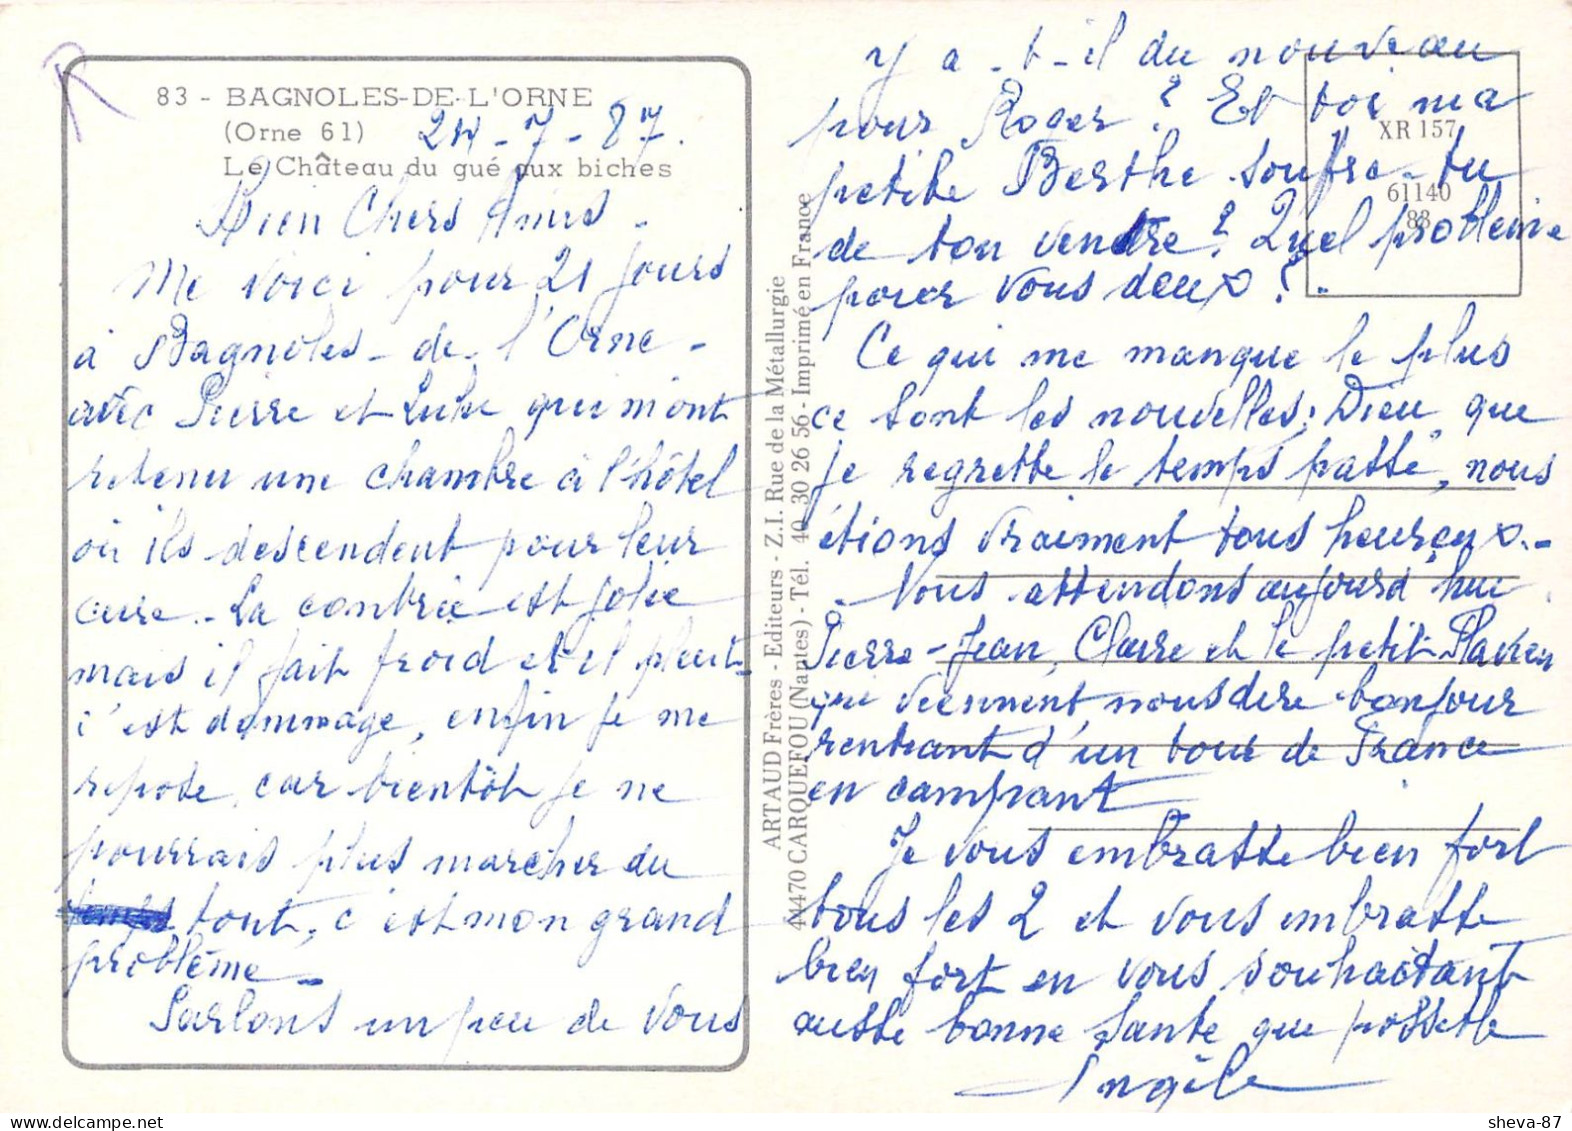 83 - BAGNOLES-DE-L'ORNE
(Orne 61)
24-7-87.
Le Château du gué aux biches
Bien Chers Amis -
Me voici pour 21 jours
à Bagnoles - de - l'Orne -
avec Pierre et qui m'ont
retenu une chambre à l'hôtel
où ils descendent pour leur
cure. - La contrée est jolie
mais il fait froid et il pleut -
c'est dommage, enfin je me
repose, car bientôt je ne
pourrais plus marcher du
tout, c'est mon grand
problème -
Parlons un peu de vous
y a-t-il du nouveau
pour Roger ? Et toi ma
petite Berthe souffre-tu
de ton ventre ? Quel problème
pour vous deux ! .
Ce qui me manque le plus
ce sont les nouvelles ; Dieu, que
je regrette le temps passé, nous
étions vraiment tous heureux. -
Nous attendons aujourd'hui
Pierre-Jean, Claire et le petit Flavien
qui viennent nous dire bonjour
rentrant d'un tour de France
en campant
Je vous embrasse bien fort
tous les 2 et vous embrasse
bien fort en vous souhaitant
aussi bonne santé que possible
Angèle
XR 157
61140
83
ARTAUD Frères - Editeurs - Z.I. Rue de la Métallurgie
44470 CARQUEFOU (Nantes) - Tél. 40 30 26 56 - Imprimé en France
R
sheva-87